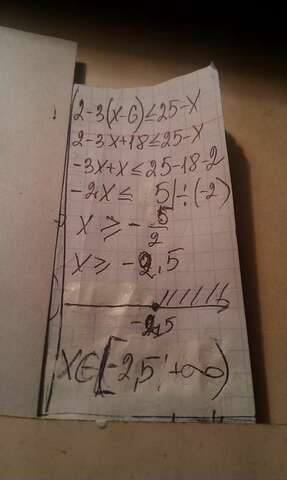 2-3(x-6)≤25-x
2-3x+18≤25-x
-3x+x≤25-18-2
-2x≤ 5|÷(-2)
x≥-5/2
x≥-2,5
-2,5
x∈[-2,5;+∞)